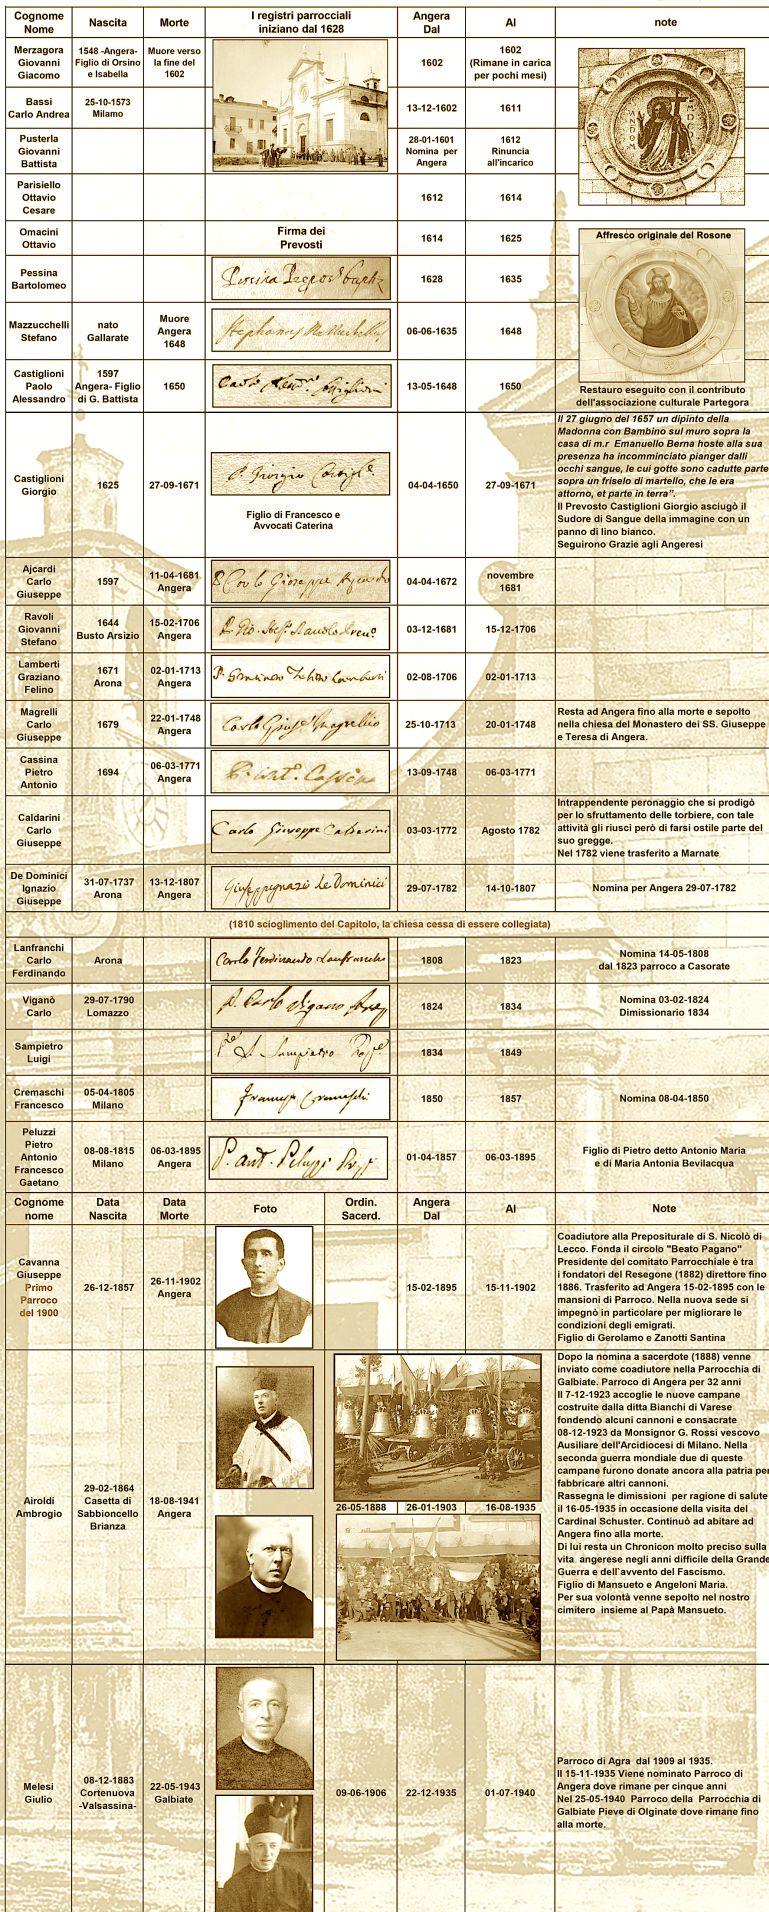 Cognome Nome
Nascita
Morte
I registri parrocciali
iniziano dal 1628
Angera
Dal
Al
note
Merzagora
Giovanni
Giacomo
1548 -Angera-
Figlio di Orsino
e Isabella
Muore verso
la fine del
1602
1602
1602
(Rimane in carica
per pochi mesi)
Bassi
Carlo Andrea
25-10-1573
Milamo
13-12-1602
1611
Pusterla
Giovanni
Battista
28-01-1601
Nomina per
Angera
1612
Rinuncia
all'incarico
Parisiello
Ottavio
Cesare
1612
1614
Omacini
Ottavio
Firma dei
Prevosti
1614
1625
Affresco originale del Rosone
Pessina
Bartolomeo
1628
1635
Mazzucchelli
Stefano
nato
Gallarate
Muore
Angera
1648
06-06-1635
1648
Castiglioni
Paolo
Alessandro
1597
Angera- Figlio
di G. Battista
1650
13-05-1648
1650
Restauro eseguito con il contributo
dell'associazione culturale Partegora
Castiglioni
Giorgio
1625
27-09-1671
Figlio di Francesco e
Avvocati Caterina
04-04-1650
27-09-1671
Il 27 giugno del 1657 un dipinto della
Madonna con Bambino sul muro sopra la
casa di m.r Emanuello Berna hoste alla sua
presenza ha incomminciato pianger dalli
occhi sangue, le cui gotte sono cadutte parte
sopra un friselo di martello, che le era
attorno, et parte in terra”.
Il Prevosto Castiglioni Giorgio asciugò il
Sudore di Sangue della immagine con un
panno di lino bianco.
Seguirono Grazie agli Angeresi
Ajcardi
Carlo
Giuseppe
1597
11-04-1681
Angera
04-04-1672
novembre
1681
Ravoli
Giovanni
Stefano
1644
Busto Arsizio
15-02-1706
Angera
03-12-1681
15-12-1706
Lamberti
Graziano
Felino
1671
Arona
02-01-1713
Angera
02-08-1706
02-01-1713
Magrelli
Carlo
Giuseppe
1679
22-01-1748
Angera
25-10-1713
20-01-1748
Resta ad Angera fino alla morte e sepolto
nella chiesa del Monastero dei SS. Giuseppe
e Teresa di Angera.
Cassina
Pietro
Antonio
1694
06-03-1771
Angera
13-09-1748
06-03-1771
Caldarini
Carlo
Giuseppe
Carlo Giuseppe Caldarini
03-03-1772
Agosto 1782
Intrappendente peronaggio che si prodigò
per lo sfruttamento delle torbiere, con tale
attività gli riuscì però di farsi ostile parte del
suo gregge.
Nel 1782 viene trasferito a Marnate
De Dominici
Ignazio
Giuseppe
31-07-1737
Arona
13-12-1807
Angera
29-07-1782
14-10-1807
Nomina per Angera 29-07-1782
(1810 scioglimento del Capitolo, la chiesa cessa di essere collegiata)
Lanfranchi
Carlo
Ferdinando
Arona
Carlo Ferdinando Lanfranchi
1808
1823
Nomina 14-05-1808
dal 1823 parroco a Casorate
Viganò
Carlo
29-07-1790
Lomazzo
1824
1834
Nomina 03-02-1824
Dimissionario 1834
Sampietro
Luigi
1834
1849
Cremaschi
Francesco
05-04-1805
Milano
1850
1857
Nomina 08-04-1850
Peluzzi
Pietro
Antonio
Francesco
Gaetano
08-08-1815
Milano
06-03-1895
Angera
01-04-1857
06-03-1895
Figlio di Pietro detto Antonio Maria
e di Maria Antonia Bevilacqua
Cognome
nome
Data
Nascita
Data
Morte
Foto
Ordin.
Sacerd.
Angera
Dal
Al
Note
Cavanna
Giuseppe
Primo
Parroco
del 1900
26-12-1857
26-11-1902
Angera
15-02-1895
15-11-1902
Coadiutore alla Prepositurale di S. Nicolò di
Lecco. Fonda il circolo "Beato Pagano"
Presidente del comitato Parrocchiale è tra
i fondatori del Resegone (1882) direttore fino
1886. Trasferito ad Angera 15-02-1895 con le
mansioni di Parroco. Nella nuova sede si
impegnò in particolare per migliorare le
condizioni degli emigrati.
Figlio di Gerolamo e Zanotti Santina
Airoldi
Ambrogio
29-02-1864
Casetta di
Sabbioncello
Brianza
18-08-1941
Angera
26-05-1888
26-01-1903
16-08-1935
Dopo la nomina a sacerdote (1888) venne
inviato come coadiutore nella Parrocchia di
Galbiate. Parroco di Angera per 32 anni
Il 7-12-1923 accoglie le nuove campane
costruite dalla ditta Bianchi di Varese
fondendo alcuni cannoni e consacrate
08-12-1923 da Monsignor G. Rossi vescovo
Ausiliare dell'Arcidiocesi di Milano. Nella
seconda guerra mondiale due di queste
campane furono donate ancora alla patria per
fabbricare altri cannoni.
Rassegna le dimissioni per ragione di salute
il 16-05-1935 in occasione della visita del
Cardinal Schuster. Continuò ad abitare ad
Angera fino alla morte.
Di lui resta un Chronicon molto preciso sulla
vita angerese negli anni difficile della Grande
Guerra e dell`avvento del Fascismo.
Figlio di Mansueto e Angeloni Maria.
Per sua volontà venne sepolto nel nostro
cimitero insieme al Papà Mansueto.
Melesi
Giulio
08-12-1883
Cortenuova
-Valsassina-
22-05-1943
Galbiate
09-06-1906
22-12-1935
01-07-1940
Parroco di Agra dal 1909 al 1935.
Il 15-11-1935 Viene nominato Parroco di
Angera dove rimane per cinque anni
Nel 25-05-1940 Parroco della Parrocchia di
Galbiate Pieve di Olginate dove rimane fino
alla morte.